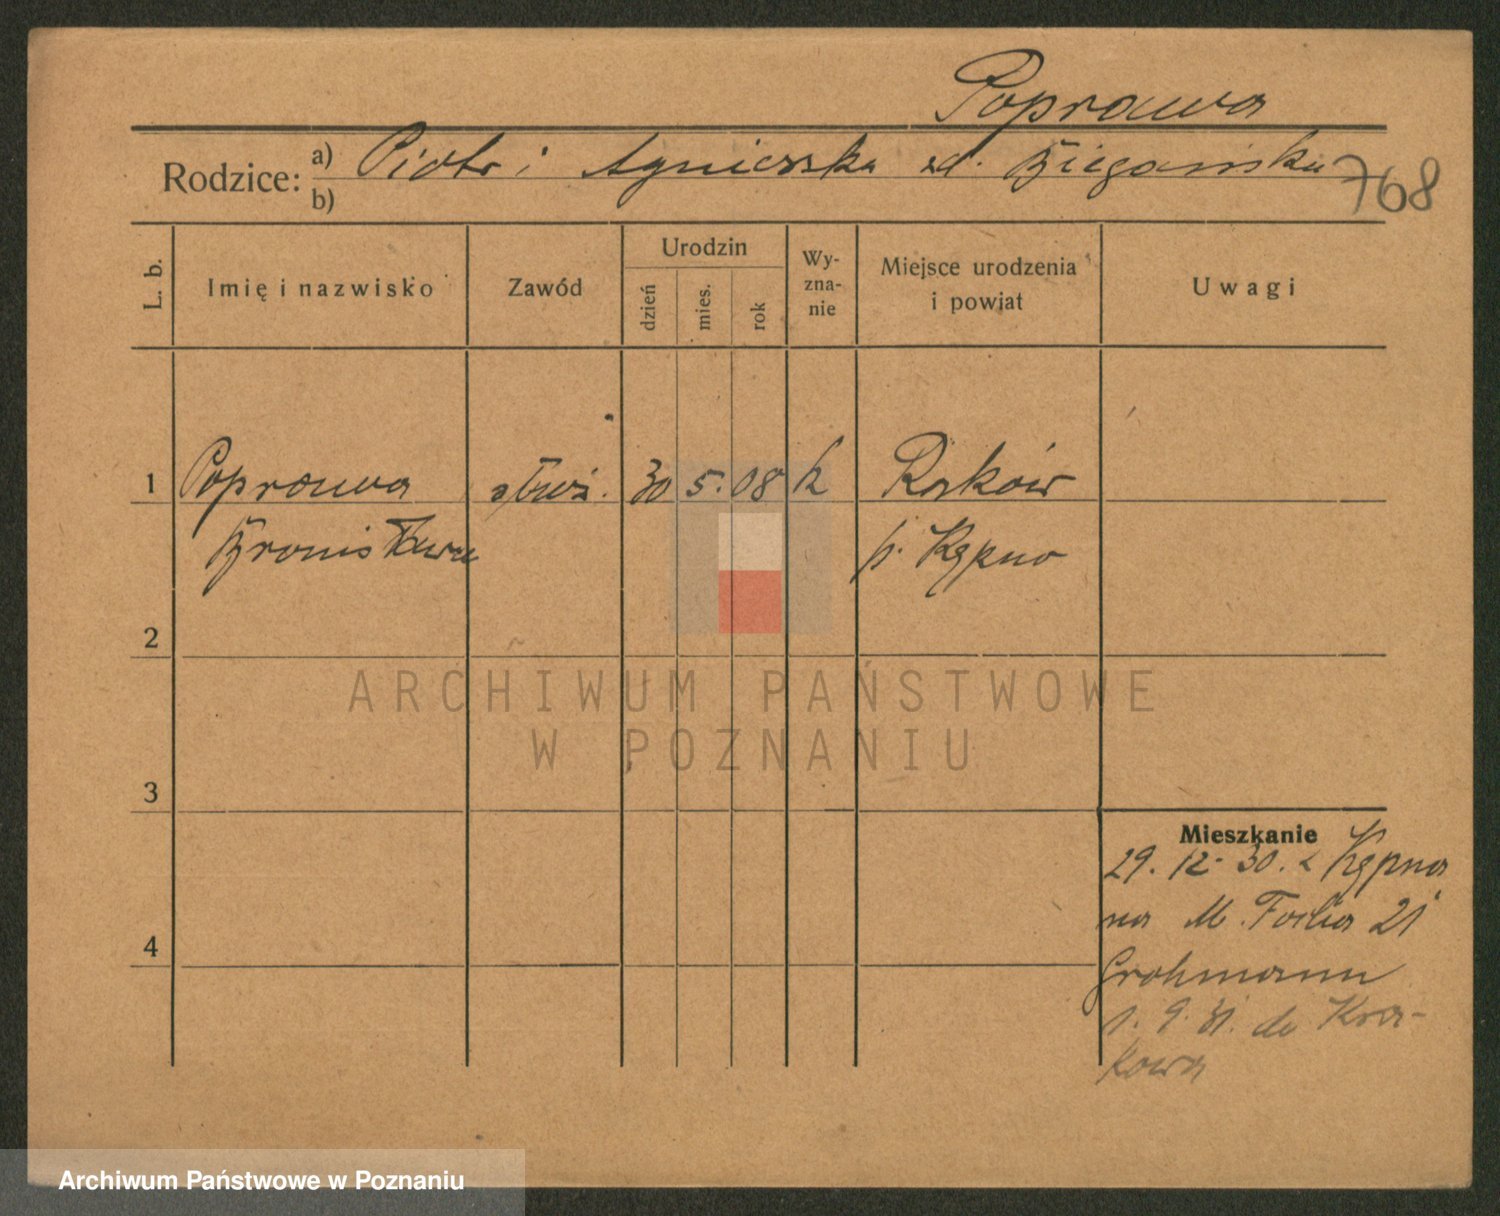 Poprawa
Rodzice: a) Piotr i Agnieszka zd. Biegańska
b)
768
L. b.
Imię i nazwisko
Zawód
Urodzin
dzień
mies.
rok
Wy-
zna-
nie
Miejsce urodzenia
i powiat
Uwagi
1 Poprawa służ. 30 5. 08 k Raków
Bronisława p. Kępno
2
3
4
Mieszkanie
29. 12. 30. z Kępna
na M. Focha 21
Grohmann
1. 9. 31. do Kra-
kowa
ARCHIWUM PAŃSTWOWE
W POZNANIU
Archiwum Państwowe w Poznaniu